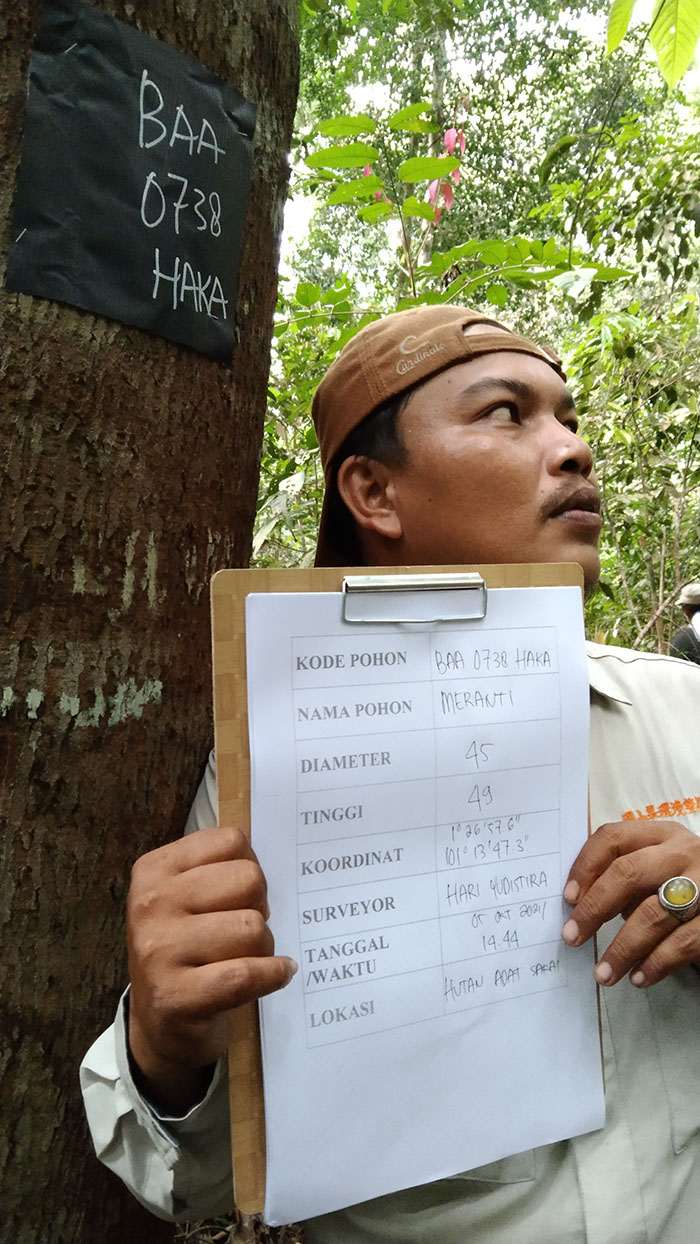 BAA
0738
HAKA
Cardinals
KODE POHON BAA 0738 HAKA
NAMA POHON MERANTI
DIAMETER 45
TINGGI 49
KOORDINAT 1° 26' 57 6"
101° 13' 47 3"
SURVEYOR HARI YUDISTIRA
TANGGAL 05 OKT 2021/
/WAKTU 14.44
LOKASI HUTAN ADAT SAKAI